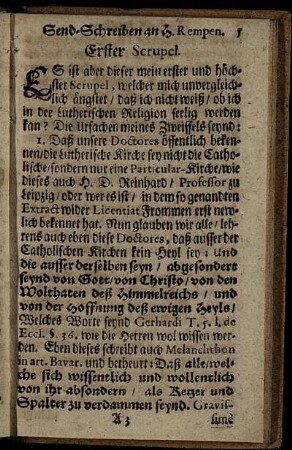 Send-Schreiben an H. Rempen. 5
Erster Scrupel.
ES ist aber dieser mein erster und höch-
ster Scrupel, welcher mich unvergleich-
lich ängstet / daß ich nicht weiß / ob ich
in der Lutherischen Religion seelig werden
kan? Die Ursachen meines Zweiffels seynd:
1. Daß unsere Doctores öffentlich beken-
nen / die Lutherische Kirche sey nicht die Catho-
lische / sondern nur eine Particular-Kirche / wie
dieses auch H. D. Reinhard / Professor zu
Leipzig / oder wer es ist / in dem so genandten
Extract wider Licentiat Frommen erst new-
lich bekennet hat. Nun glauben wir alle / leh-
rens auch eben diese Doctores, daß ausser der
Catholischen Kirchen kein Heyl sey: und
die ausser derselben seyn / abgesondert
seynd von Gott / von Christo / von den
Wolthaten deß Himmelreichs / und
von der Hoffnung deß ewigen Heyls /
Welches Worte seynd Gerhardi T. 5. l. de
Eccl. §. 36. wie die Herren wol wissen wer-
den. Eben dieses schreibt auch Melanchthon
in art. Bavar. und betheurt: Daß alle / wel-
che sich wissentlich und wollentlich
von ihr absondern / als Ketzer und
Spalter zu verdammen seynd. Gravis-
A 3 simè